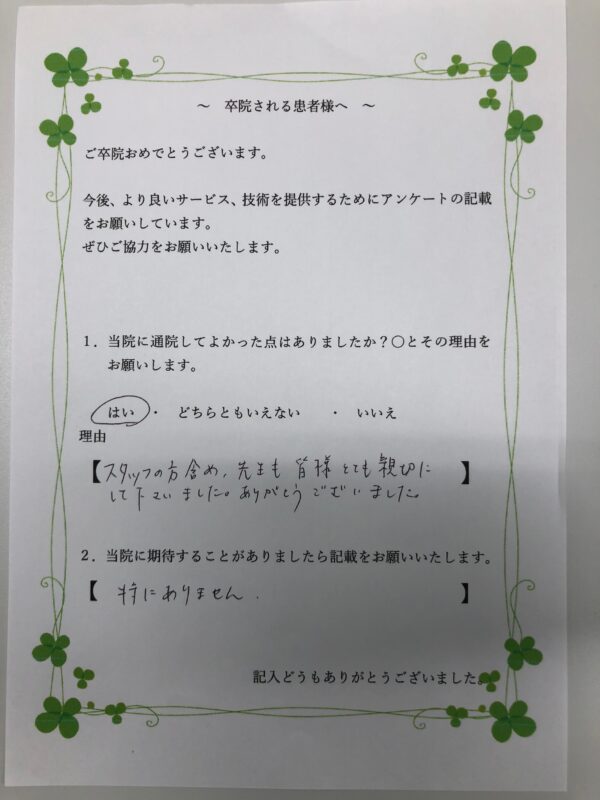 ～　卒院される患者様へ　～
ご卒院おめでとうございます。
今後、より良いサービス、技術を提供するためにアンケートの記載
をお願いしています。
ぜひご協力をお願いいたします。
１．当院に通院してよかった点はありましたか？〇とその理由を
お願いします。
はい ・　どちらともいえない　・　いいえ
理由
【スタッフの方含め、先生も皆様とても親切に】
して下さいました。ありがとうございました。
２．当院に期待することがありましたら記載をお願いいたします。
【特にありません.】
記入どうもありがとうございました。